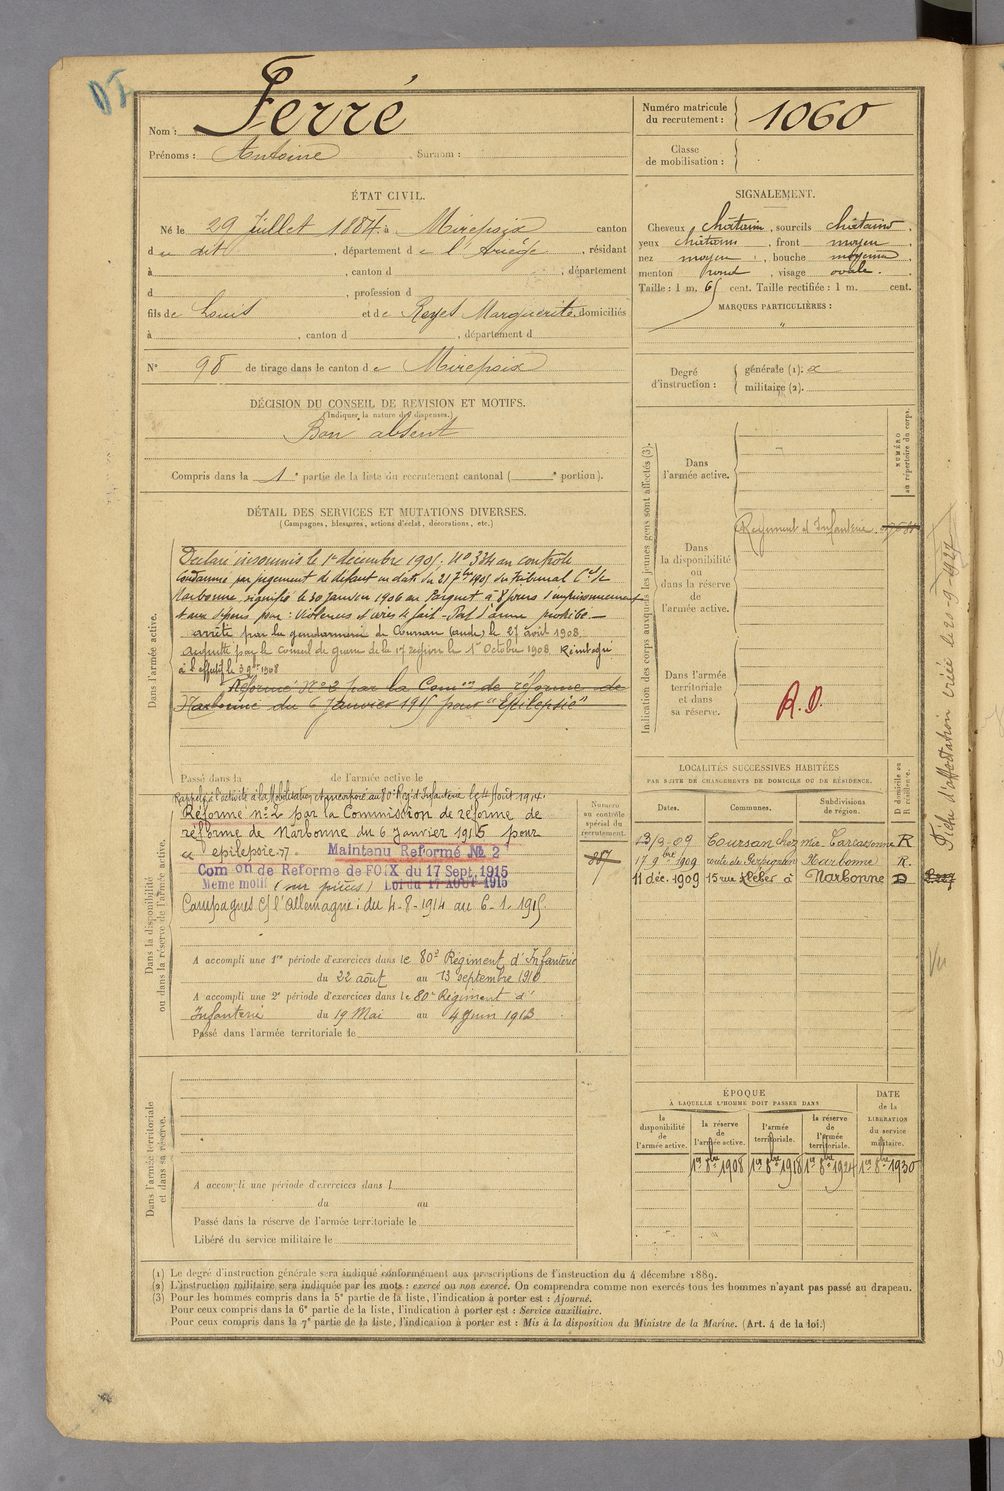 Nom : Ferré
Prénoms : Antoine Surnom :
Numéro matricule du recrutement : 1060
Classe de mobilisation :
ÉTAT CIVIL.
Né le 29 Juillet 1884 à Mirepoix canton
du dit, département de l'Ariège, résidant
à , canton d , département
d , profession d
fils de Louis et de Reyes Marguerite, domiciliés
à , canton d , département d
N° 98 de tirage dans le canton de Mirepoix
SIGNALEMENT.
Cheveux châtains, sourcils châtains,
yeux châtains, front moyen,
nez moyen, bouche moyenne,
menton rond, visage ovale.
Taille : 1 m. 65 cent. Taille rectifiée : 1 m. cent.
MARQUES PARTICULIÈRES :
"
Degré d'instruction : générale (1).
militaire (2).
DÉCISION DU CONSEIL DE REVISION ET MOTIFS.
(Indiquer la nature des dispenses.)
Bon absent
Compris dans la 1e partie de la liste du recrutement cantonal ( e portion).
DÉTAIL DES SERVICES ET MUTATIONS DIVERSES.
(Campagnes, blessures, actions d'éclat, décorations, etc.)
Dans l'armée active.
Déclaré insoumis le 1er décembre 1905. N° 334 au contrôle
Condamné par jugement de défaut en date du 21 7bre 1905 du Tribunal Cel de
Narbonne, signifié le 30 janvier 1906 au Parquet à 8 jours d'emprisonnement
et aux dépens pour : violences et voies de fait - Port d'arme prohibé -
arrêté par la gendarmerie de Coursan (aude) le 27 août 1908
acquitté par le conseil de guerre de la 17e région le 1er Octobre 1908 Réintégré
à l'effectif le 3 9bre 1908
Réformé N° 2 par la Comon de réforme de
Narbonne du 6 Janvier 1915 pour "Epilepsie"
Passé dans la de l'armée active le
Dans la disponibilité ou dans la réserve de l'armée active.
Rappelé à l'activité à la Mobilisation et incorporé au 80e Reg. d'Infanterie le 4 Août 1914.
Réformé n° 2 par la Commission de réforme de
réforme de Narbonne du 6 Janvier 1915 pour
"epilepsie"
Maintenu Reformé № 2
Comon de Reforme de FOIX du 17 Sept. 1915
Meme motif (sur pièces) Loi du 17 AOUT 1915
Campagnes c/ l'Allemagne : du 4-8-1914 au 6-1-1915.
A accompli une 1re période d'exercices dans le 80e Régiment d'Infanterie
du 22 août au 13 septembre 1910
A accompli une 2e période d'exercices dans le 80e Régiment d'
Infanterie du 19 Mai au 4 Juin 1913
Passé dans l'armée territoriale le
Numéro au contrôle spécial du recrutement.
Dans l'armée territoriale et dans sa réserve.
A accompli une période d'exercices dans l
du au
Passé dans la réserve de l'armée territoriale le
Libéré du service militaire le
Indication des corps auxquels les jeunes gens sont affectés (3).
NUMÉRO au répertoire du corps.
Dans l'armée active.
Dans la disponibilité ou dans la réserve de l'armée active.
Régiment d'Infanterie
Dans l'armée territoriale et dans sa réserve.
R.D.
LOCALITÉS SUCCESSIVES HABITÉES
PAR SUITE DE CHANGEMENTS DE DOMICILE OU DE RÉSIDENCE.
D domicile ou R résidence.
Dates. Communes. Subdivisions de région.
Coursan Carcassonne R
17 9bre 1909 route de Perpignan Narbonne R.
11 déc. 1909 15 rue Kléber à Narbonne D
ÉPOQUE
À LAQUELLE L'HOMME DOIT PASSER DANS
la disponibilité de l'armée active.
la réserve de l'armée active.
l'armée territoriale.
la réserve de l'armée territoriale.
DATE de la LIBÉRATION du service militaire.
1er 8bre 1908 1er 8bre 1918 1er 8bre 1924 1er 8bre 1930
Fiche d'affectation créée le 20-9-1927
Vu
(1) Le degré d'instruction générale sera indiqué conformément aux prescriptions de l'instruction du 4 décembre 1889.
(2) L'instruction militaire sera indiquée par les mots : exercé ou non exercé. On comprendra comme non exercés tous les hommes n'ayant pas passé au drapeau.
(3) Pour les hommes compris dans la 5e partie de la liste, l'indication à porter est : Ajourné.
Pour ceux compris dans la 6e partie de la liste, l'indication à porter est : Service auxiliaire.
Pour ceux compris dans la 7e partie de la liste, l'indication à porter est : Mis à la disposition du Ministre de la Marine. (Art. 4 de la loi.)